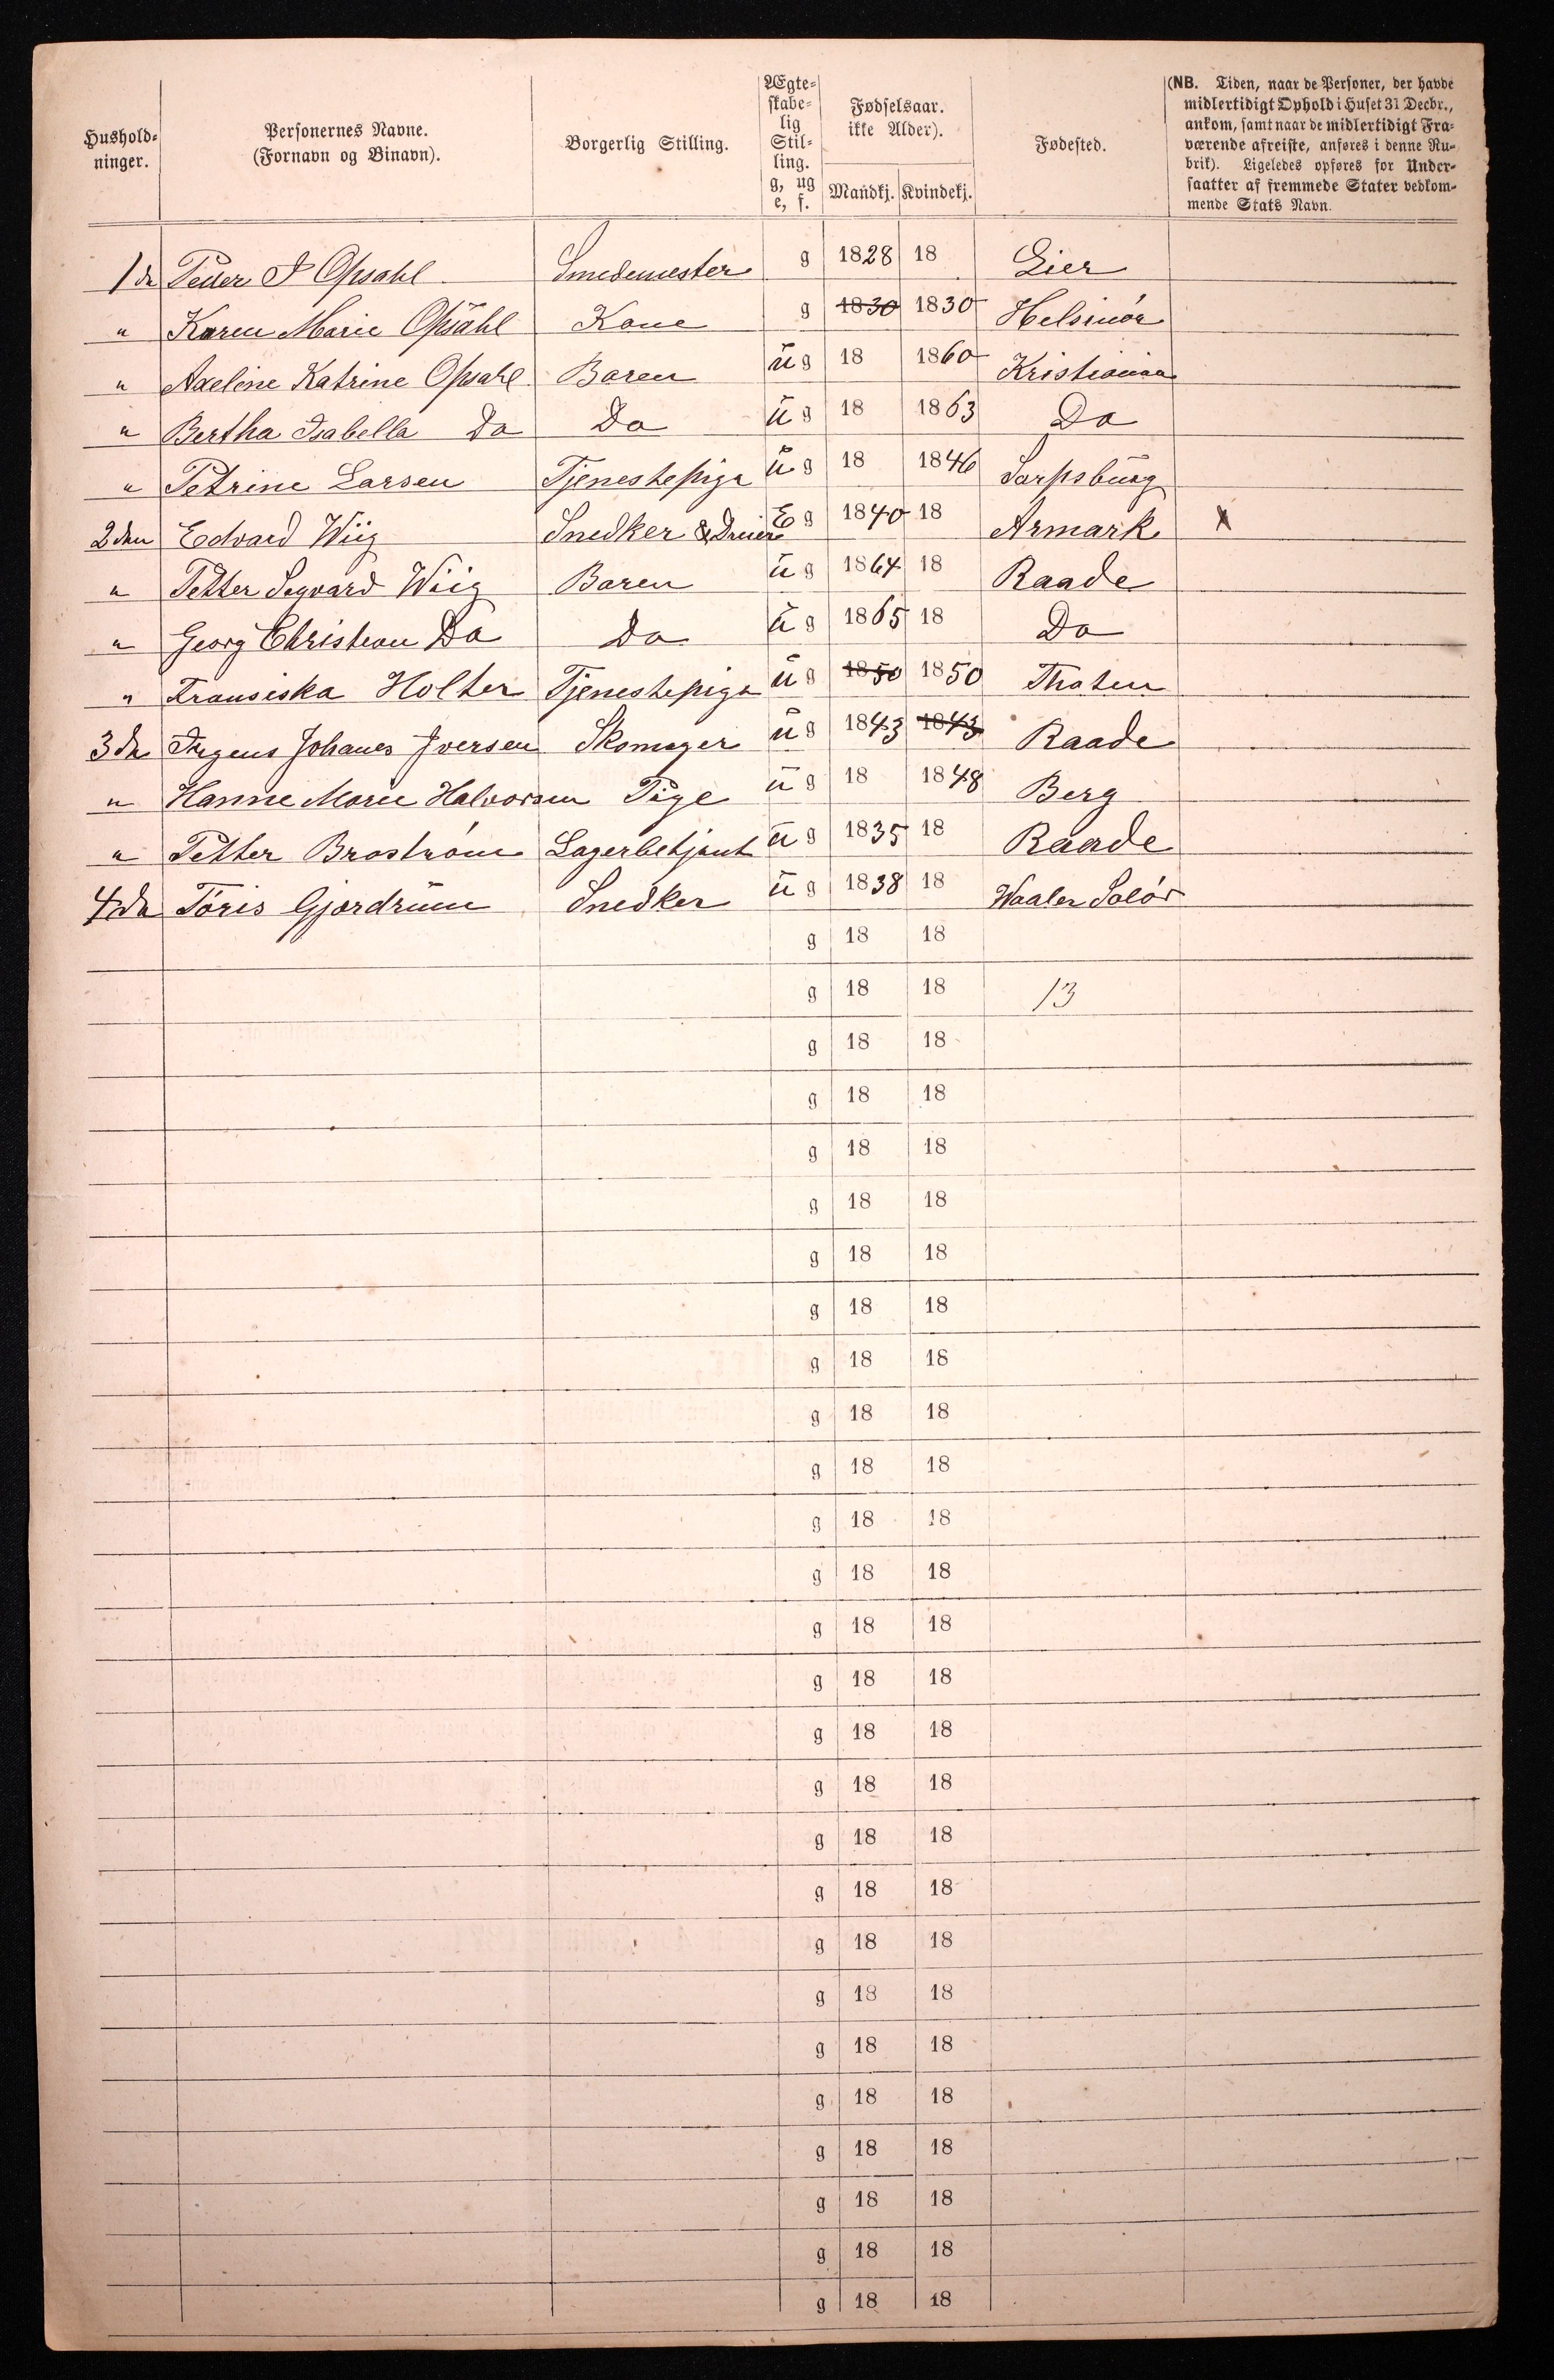 Hushold-
ninger.
Personernes Navne.
(Fornavn og Binavn).
Borgerlig Stilling.
Ægte-
skabe-
lig
Stil-
ling.
g, ug
e, f.
Fødselsaar.
ikke Alder).
Mandkj. Kvindekj.
Fødested.
(NB. Tiden, naar de Personer, der havde
midlertidigt Ophold i Huset 31 Decbr.,
ankom, samt naar de midlertidigt Fra-
værende afreiste, anføres i denne Ru-
brik). Ligeledes opføres for Under-
saatter af fremmede Stater vedkom-
mende Stats Navn.
1de Peder Opsahl Smedemester g 1828 18 Lier
" Karen Marie Opsahl Kone g 1830 1830 Helsinör
" Axeline Katrine Opsahl Baren ug 18 1860 Kristiania
" Bertha Isabella Do Do ug 18 1863 Do
" Petrine Larsen Tjenestepige ug 18 1846 Sarpsburg
2den Edvard Wiig Snedker & Dreier Eg 1840 18 Armark X
" Petter Segvard Wiig Baren ug 1864 18 Raade
" Georg Christian Do Do ug 1865 18 Do
" Fransiska Holter Tjenestepige ug 1850 1850 Thoten
3de Jrgens Johanes Iversen Skomager ug 1843 1843 Raade
" Hanne Marie Halvorsen Pige ug 18 1848 Berg
" Petter Broström Lagerbetjent ug 1835 18 Raade
4de Töris Gjordrum Snedker ug 1838 18 Waaler Solör
g 18 18
g 18 18 13
g 18 18
g 18 18
g 18 18
g 18 18
g 18 18
g 18 18
g 18 18
g 18 18
g 18 18
g 18 18
g 18 18
g 18 18
g 18 18
g 18 18
g 18 18
g 18 18
g 18 18
g 18 18
g 18 18
g 18 18
g 18 18
g 18 18
g 18 18
g 18 18
g 18 18